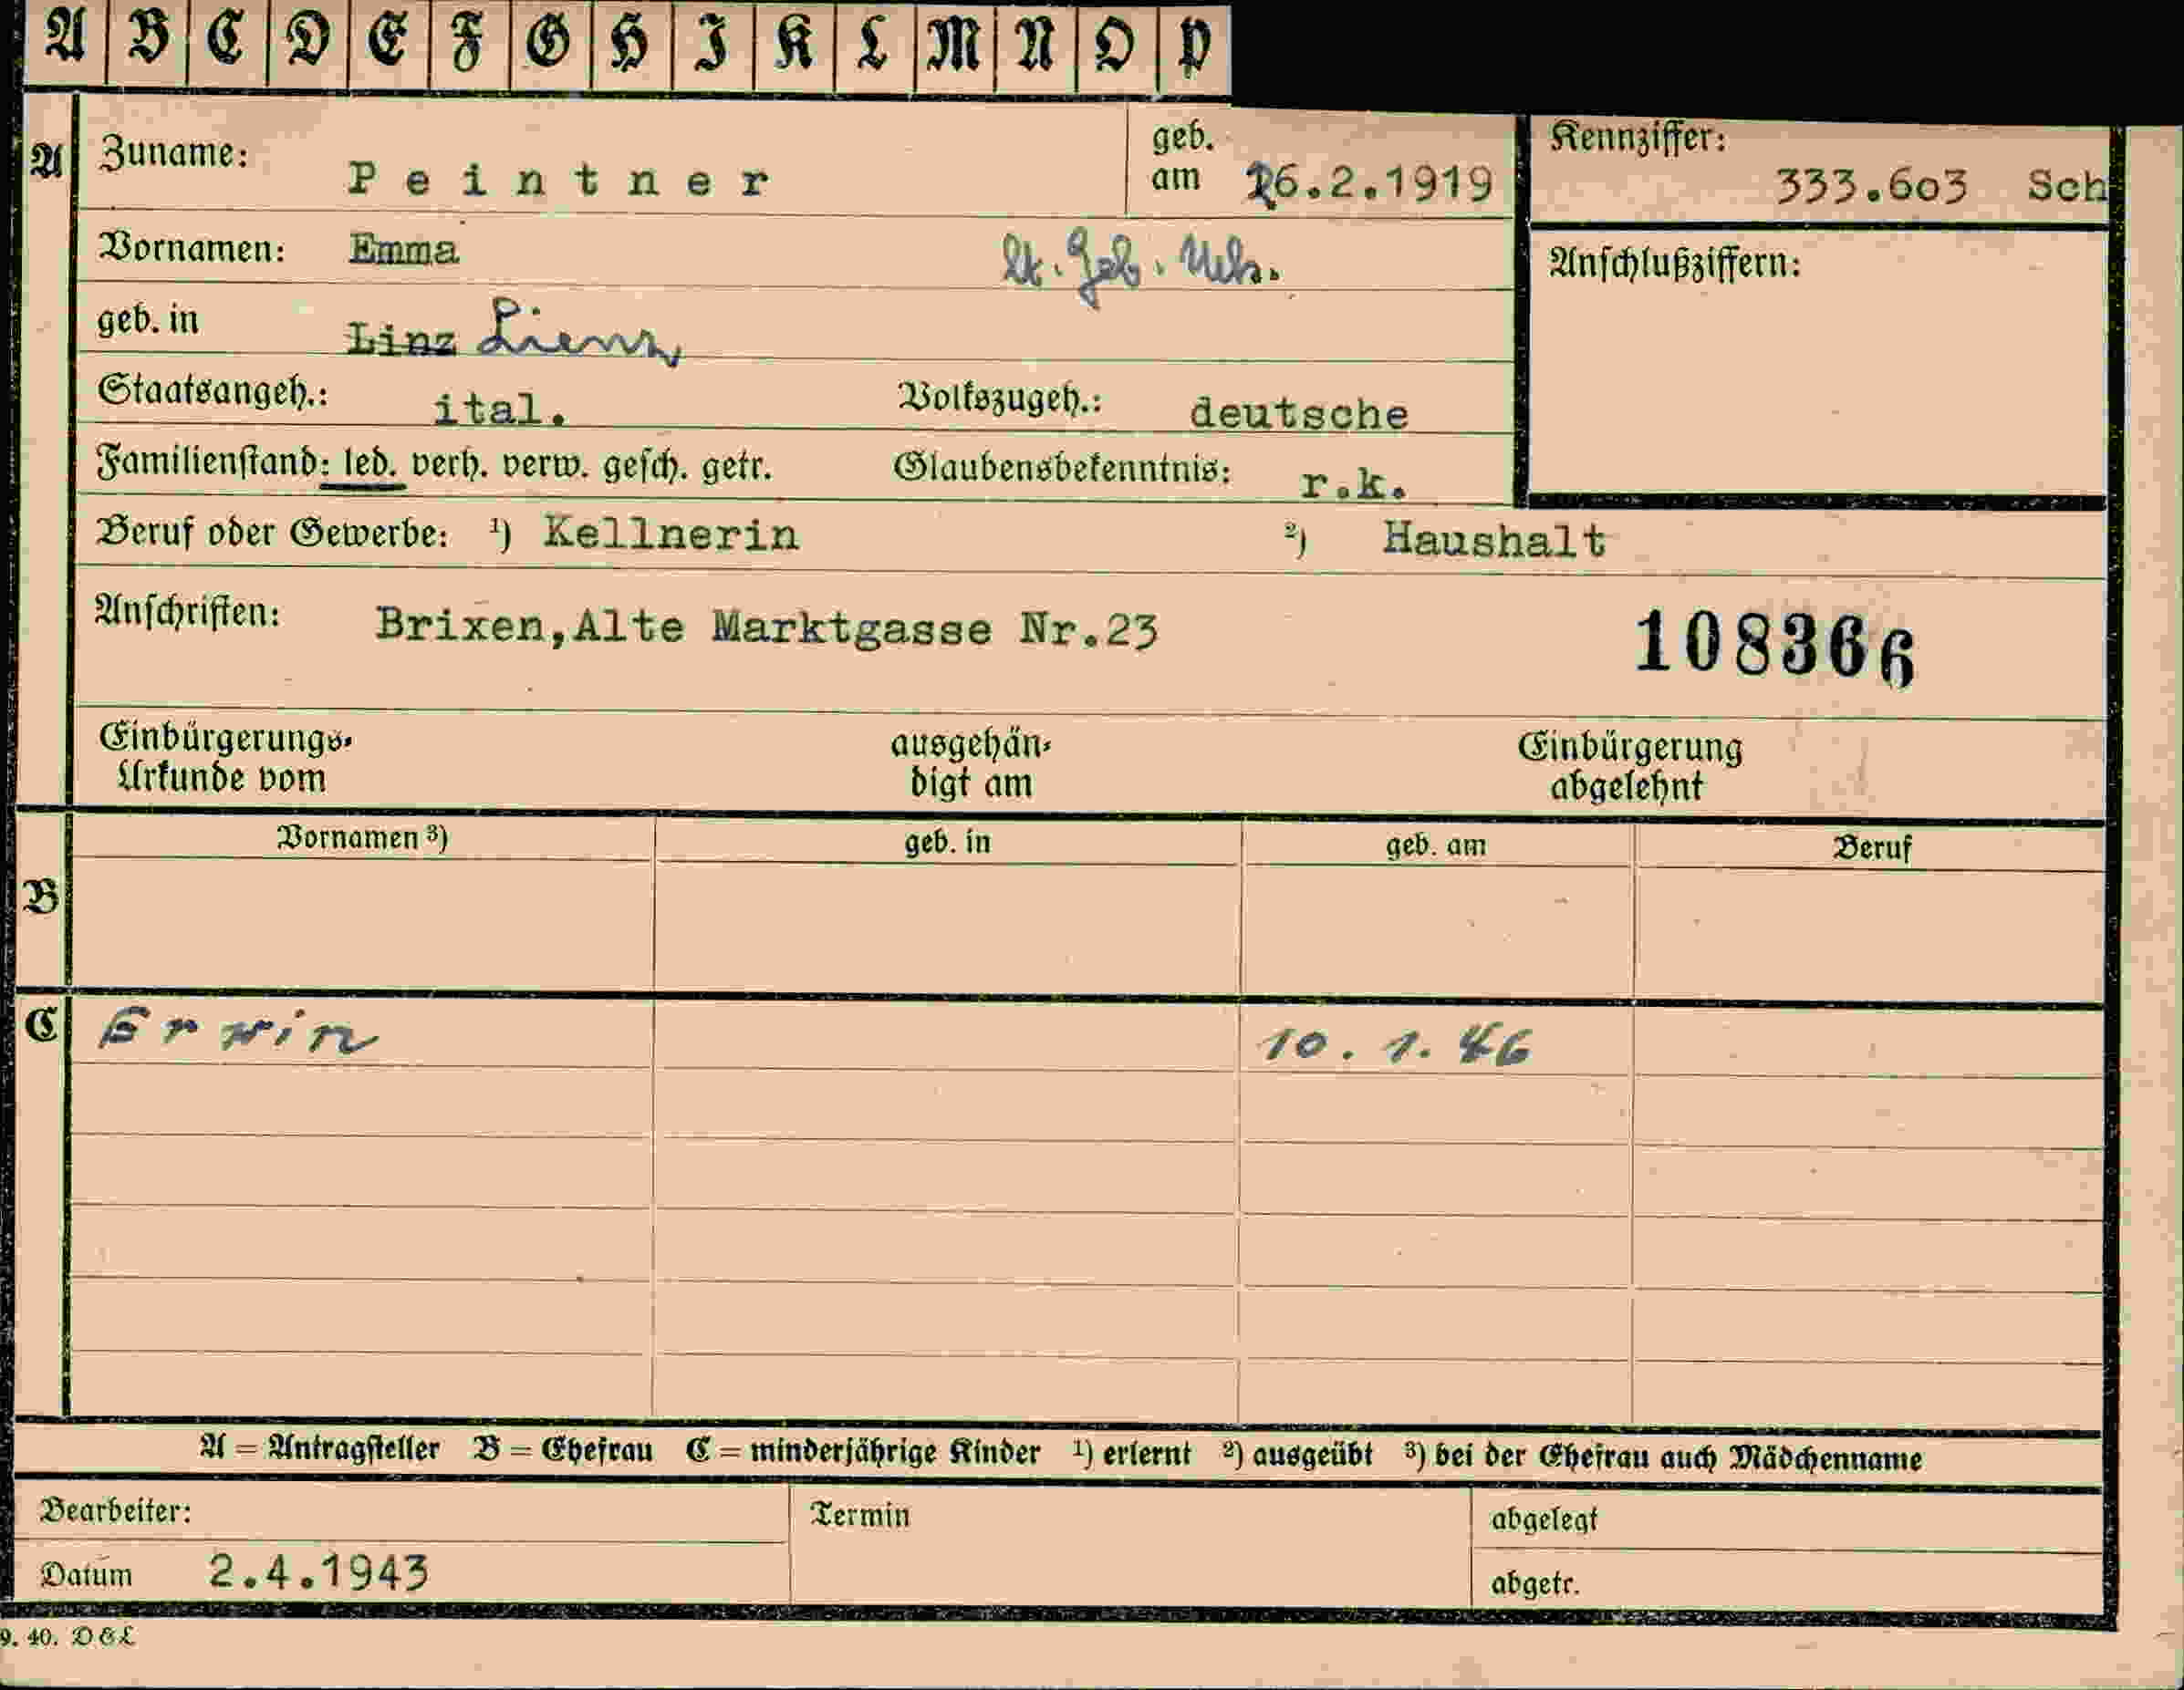 A B C D E F G H I K L M N O P
A Zuname: Peintner geb. am 26.2.1919 Kennziffer: 333.603 Sch
Vornamen: Emma lt. Geb. Urk. Anschlußziffern:
geb. in Linz Lienz
Staatsangeh.: ital. Volkszugeh.: deutsche
Familienstand: led. verh. verw. gesch. getr. Glaubensbekenntnis: r.k.
Beruf oder Gewerbe: ¹) Kellnerin ²) Haushalt
Anschriften: Brixen,Alte Marktgasse Nr.23 108366
Einbürgerungs- ausgehän- Einbürgerung
Urkunde vom digt am abgelehnt
Vornamen ³) geb. in geb. am Beruf
B
C Erwin 10. 1. 46
A = Antragsteller B = Ehefrau C = minderjährige Kinder ¹) erlernt ²) ausgeübt ³) bei der Ehefrau auch Mädchenname
Bearbeiter: Termin abgelegt
Datum 2.4.1943 abgetr.
9. 40. D & L